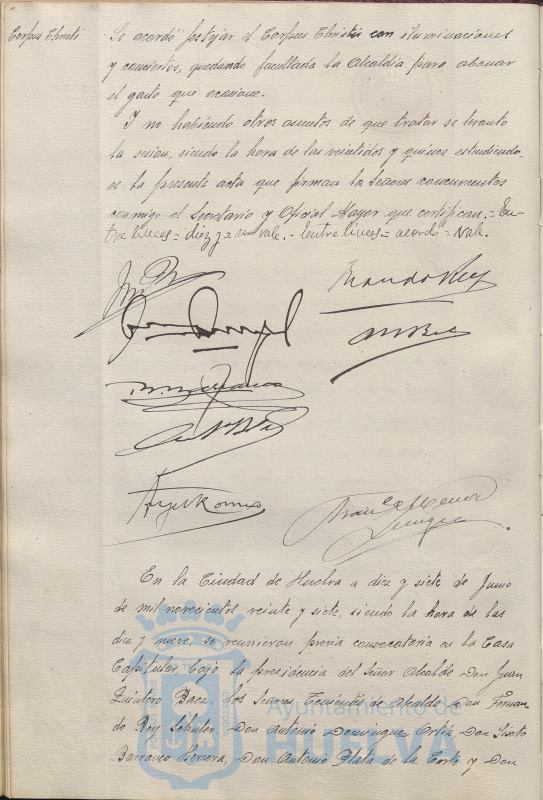 Corpus Christi
Se acordó festejar el Corpus Christi con iluminaciones
y conciertos, quedando facultada la Alcaldía para abonar
el gasto que ocasione.
Y no habiendo otros asuntos de que tratar se levantó
la sesion, siendo la hora de las veintidos y quince, estendiendo-
se la presente acta que firman los Señores concurrentes
conmigo el Secretario y Oficial Mayor que certifican.=En-
tre líneas= diez y = vale.- Entre líneas= acordó= Vale.
En la Ciudad de Huelva a diez y siete de Junio
de mil novecientos veinte y siete, siendo la hora de las
diez y nueve, se reunieron previa convocatoria en la Casa
Capitular bajo la presidencia del Señor Alcalde Don Juan
Quintero Baez, los Señores Tenientes de Alcalde Don Fernan-
do Rey Schuler, Don Antonio Dominguez Ortiz, Don Sixto
Barranco Herrera, Don Antonio Plata de la Corte y Don
Ayuntamiento de
HUELVA